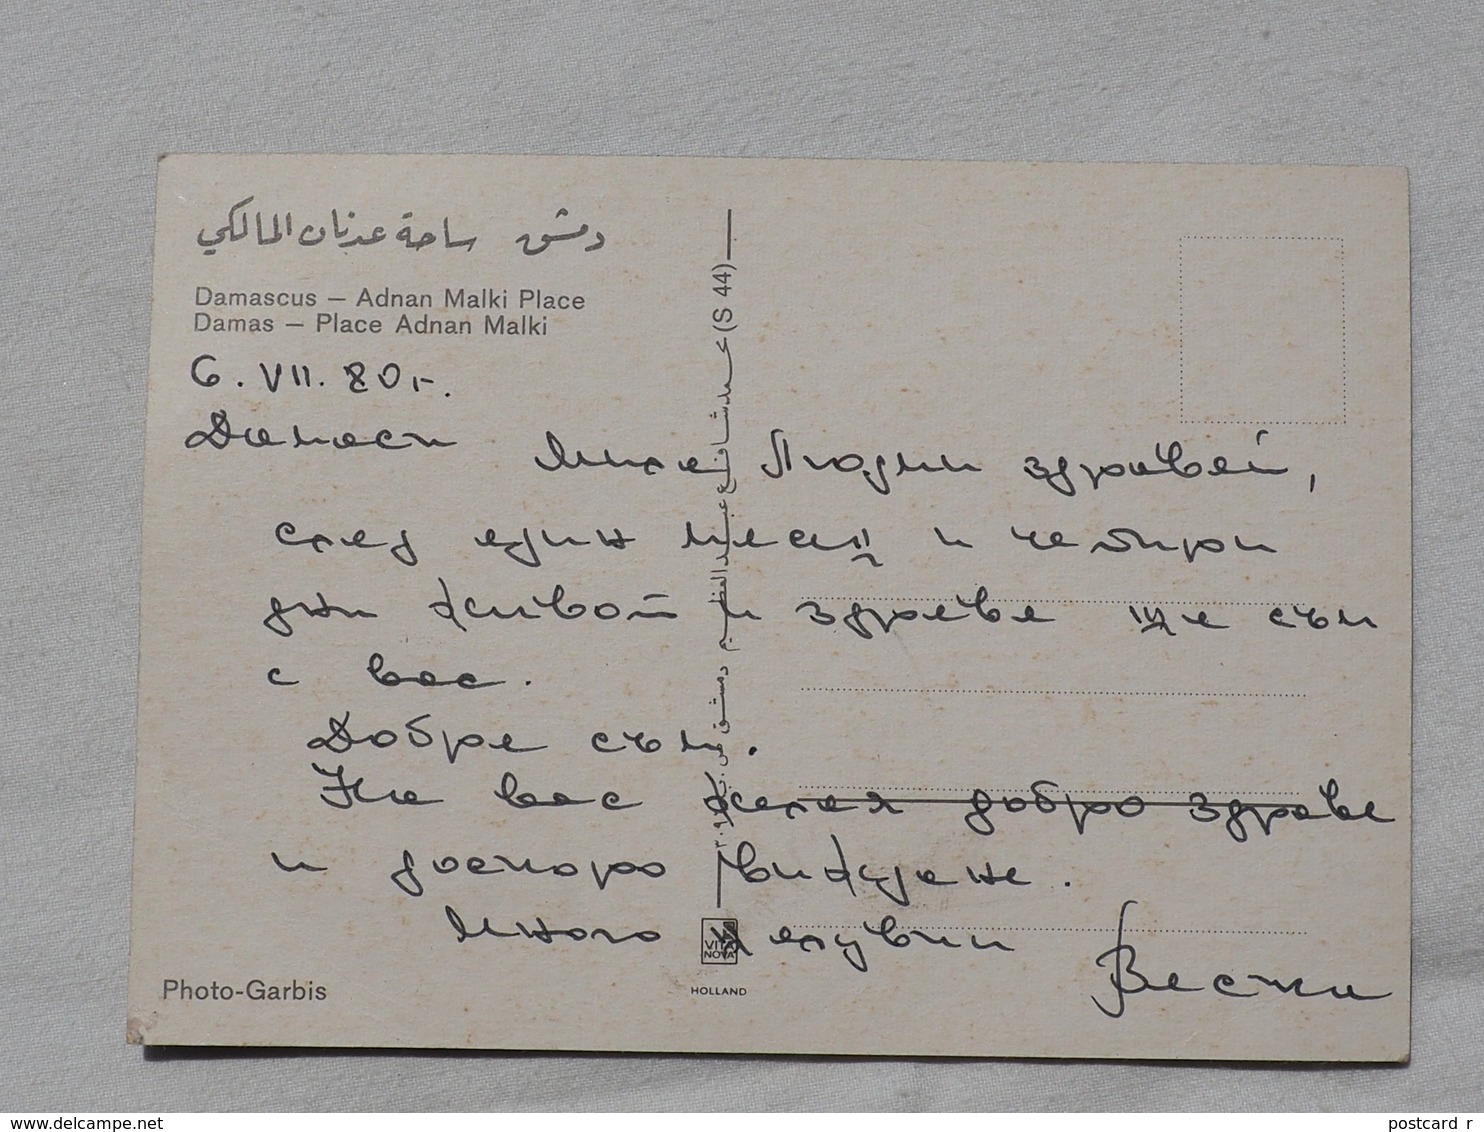 دمشق ساحة عدنان المالكي
Damascus – Adnan Malki Place
Damas – Place Adnan Malki
6. VII. 80 г.
Дамаск
Мила Людми здравей,
след един месец и четири
дни живой и здраве ще съм
с вас.
Добре съм.
На вас желая добро здраве
и доскоро виждане.
Много целувки
Photo-Garbis
(S 44)
VITA
NOVA
HOLLAND
delcampe.net
postcard_r